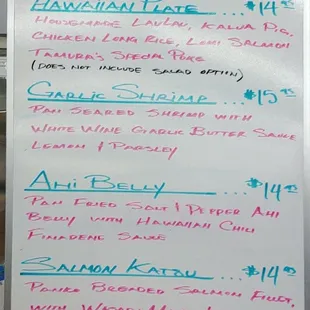 HAWAIIAN PLATE ... $14 95
HOUSEMADE LAULAU, KALUA PIG,
CHICKEN LONG RICE, LOMI SALMON
TAMURA'S SPECIAL POKE
(DOES NOT INCLUDE SALAD OPTION)
GARLIC SHRIMP ... $15 95
PAN SEARED SHRIMP WITH
WHITE WINE GARLIC BUTTER SAUCE
LEMON / PARSLEY
AHI BELLY ... $14 95
PAN FRIED SALT / PEPPER AHI
BELLY WITH HAWAIIAN CHILI
FINADENE SAUCE
SALMON KATSU ... $14 95
PANKO BREADED SALMON FILLET,
WITH